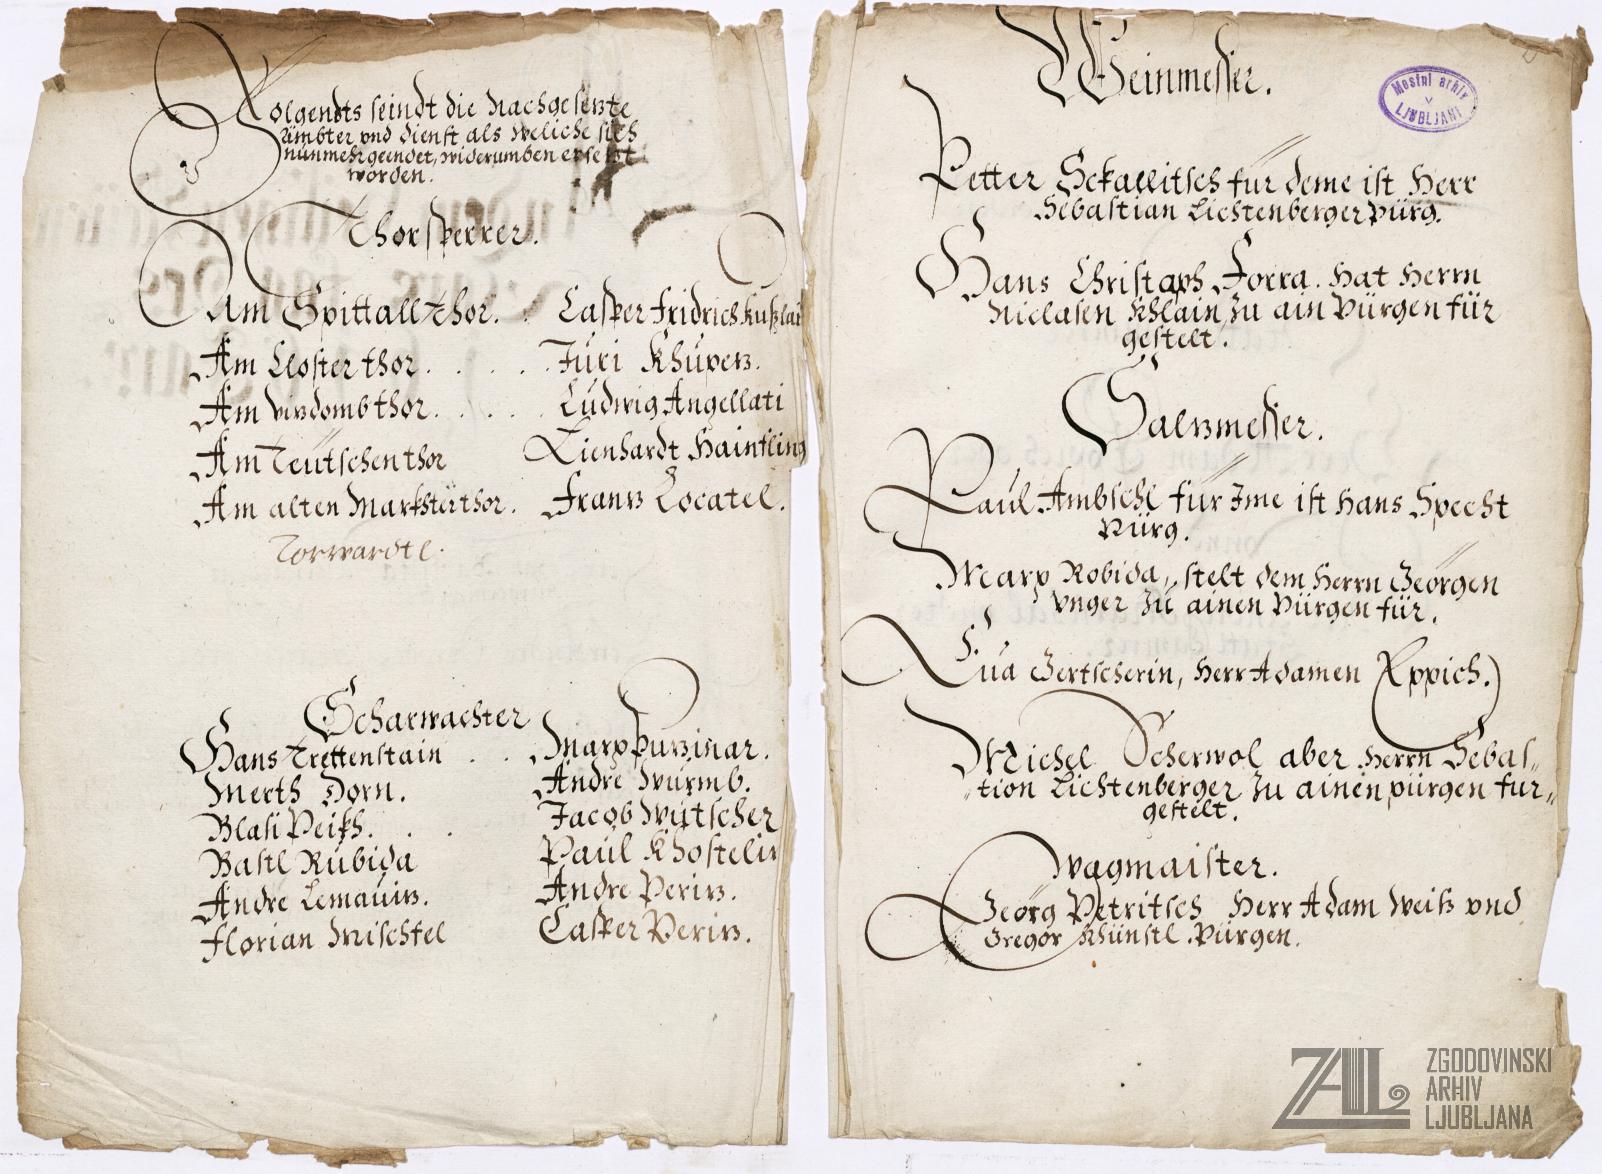 Volgendts seindt die Nachgesezte
Ämbter vnd dienst als weliche sich
nunmehr geendet, widerumben ersezt
worden.
Thorsperrer.
Am Spittall Thor. . Casper Fridrich
Am Closter thor. . . . . . Juri Khuperz.
Am vizdomb thor. . . . . . Ludwig Angellati
Am Teutschen thor Lienhardt Haintling
Am alten Markhter thor. Franz Locatel.
Torwardtl.
Scharwachter
Hans Trettenstain . . Marx Purzinar.
Merth Dorn. Andre Wurmb.
Blasi Peikh. . . Jacob Wutscher
Bastl Rubida Paul
Andre Lemauiz. Andre Periz.
Florian Mischtel Casper Periz.
Weinmesser.
Petter Sckallitsch für deme ist Herr
Sebastian Lichtenberger Pürg.
Hans Christoph Forra. Hat Herrn
Niclasen Khlain, zu ain Pürgen für
gestelt.
Salzmesser.
Paul Ambschl für Ime ist Hans Specht
Pürg.
Marx Robida, stelt dem Herrn Georgen
vnger zu ainen Pürgen für.
Eua Gertscherin, Herr Adamen Eppich.)
Michel Scherwol aber Herrn Sebas„
„tion Lichtenberger zu ainen pürgen fur„
gestelt.
Wagmaister.
Georg Petritsch Herr Adam Weiß vnd
Gregor Khünstl. Pürgen.
Mestni arhiv
v
LJUBLJANI
ZAL
ZGODOVINSKI
ARHIV
LJUBLJANA